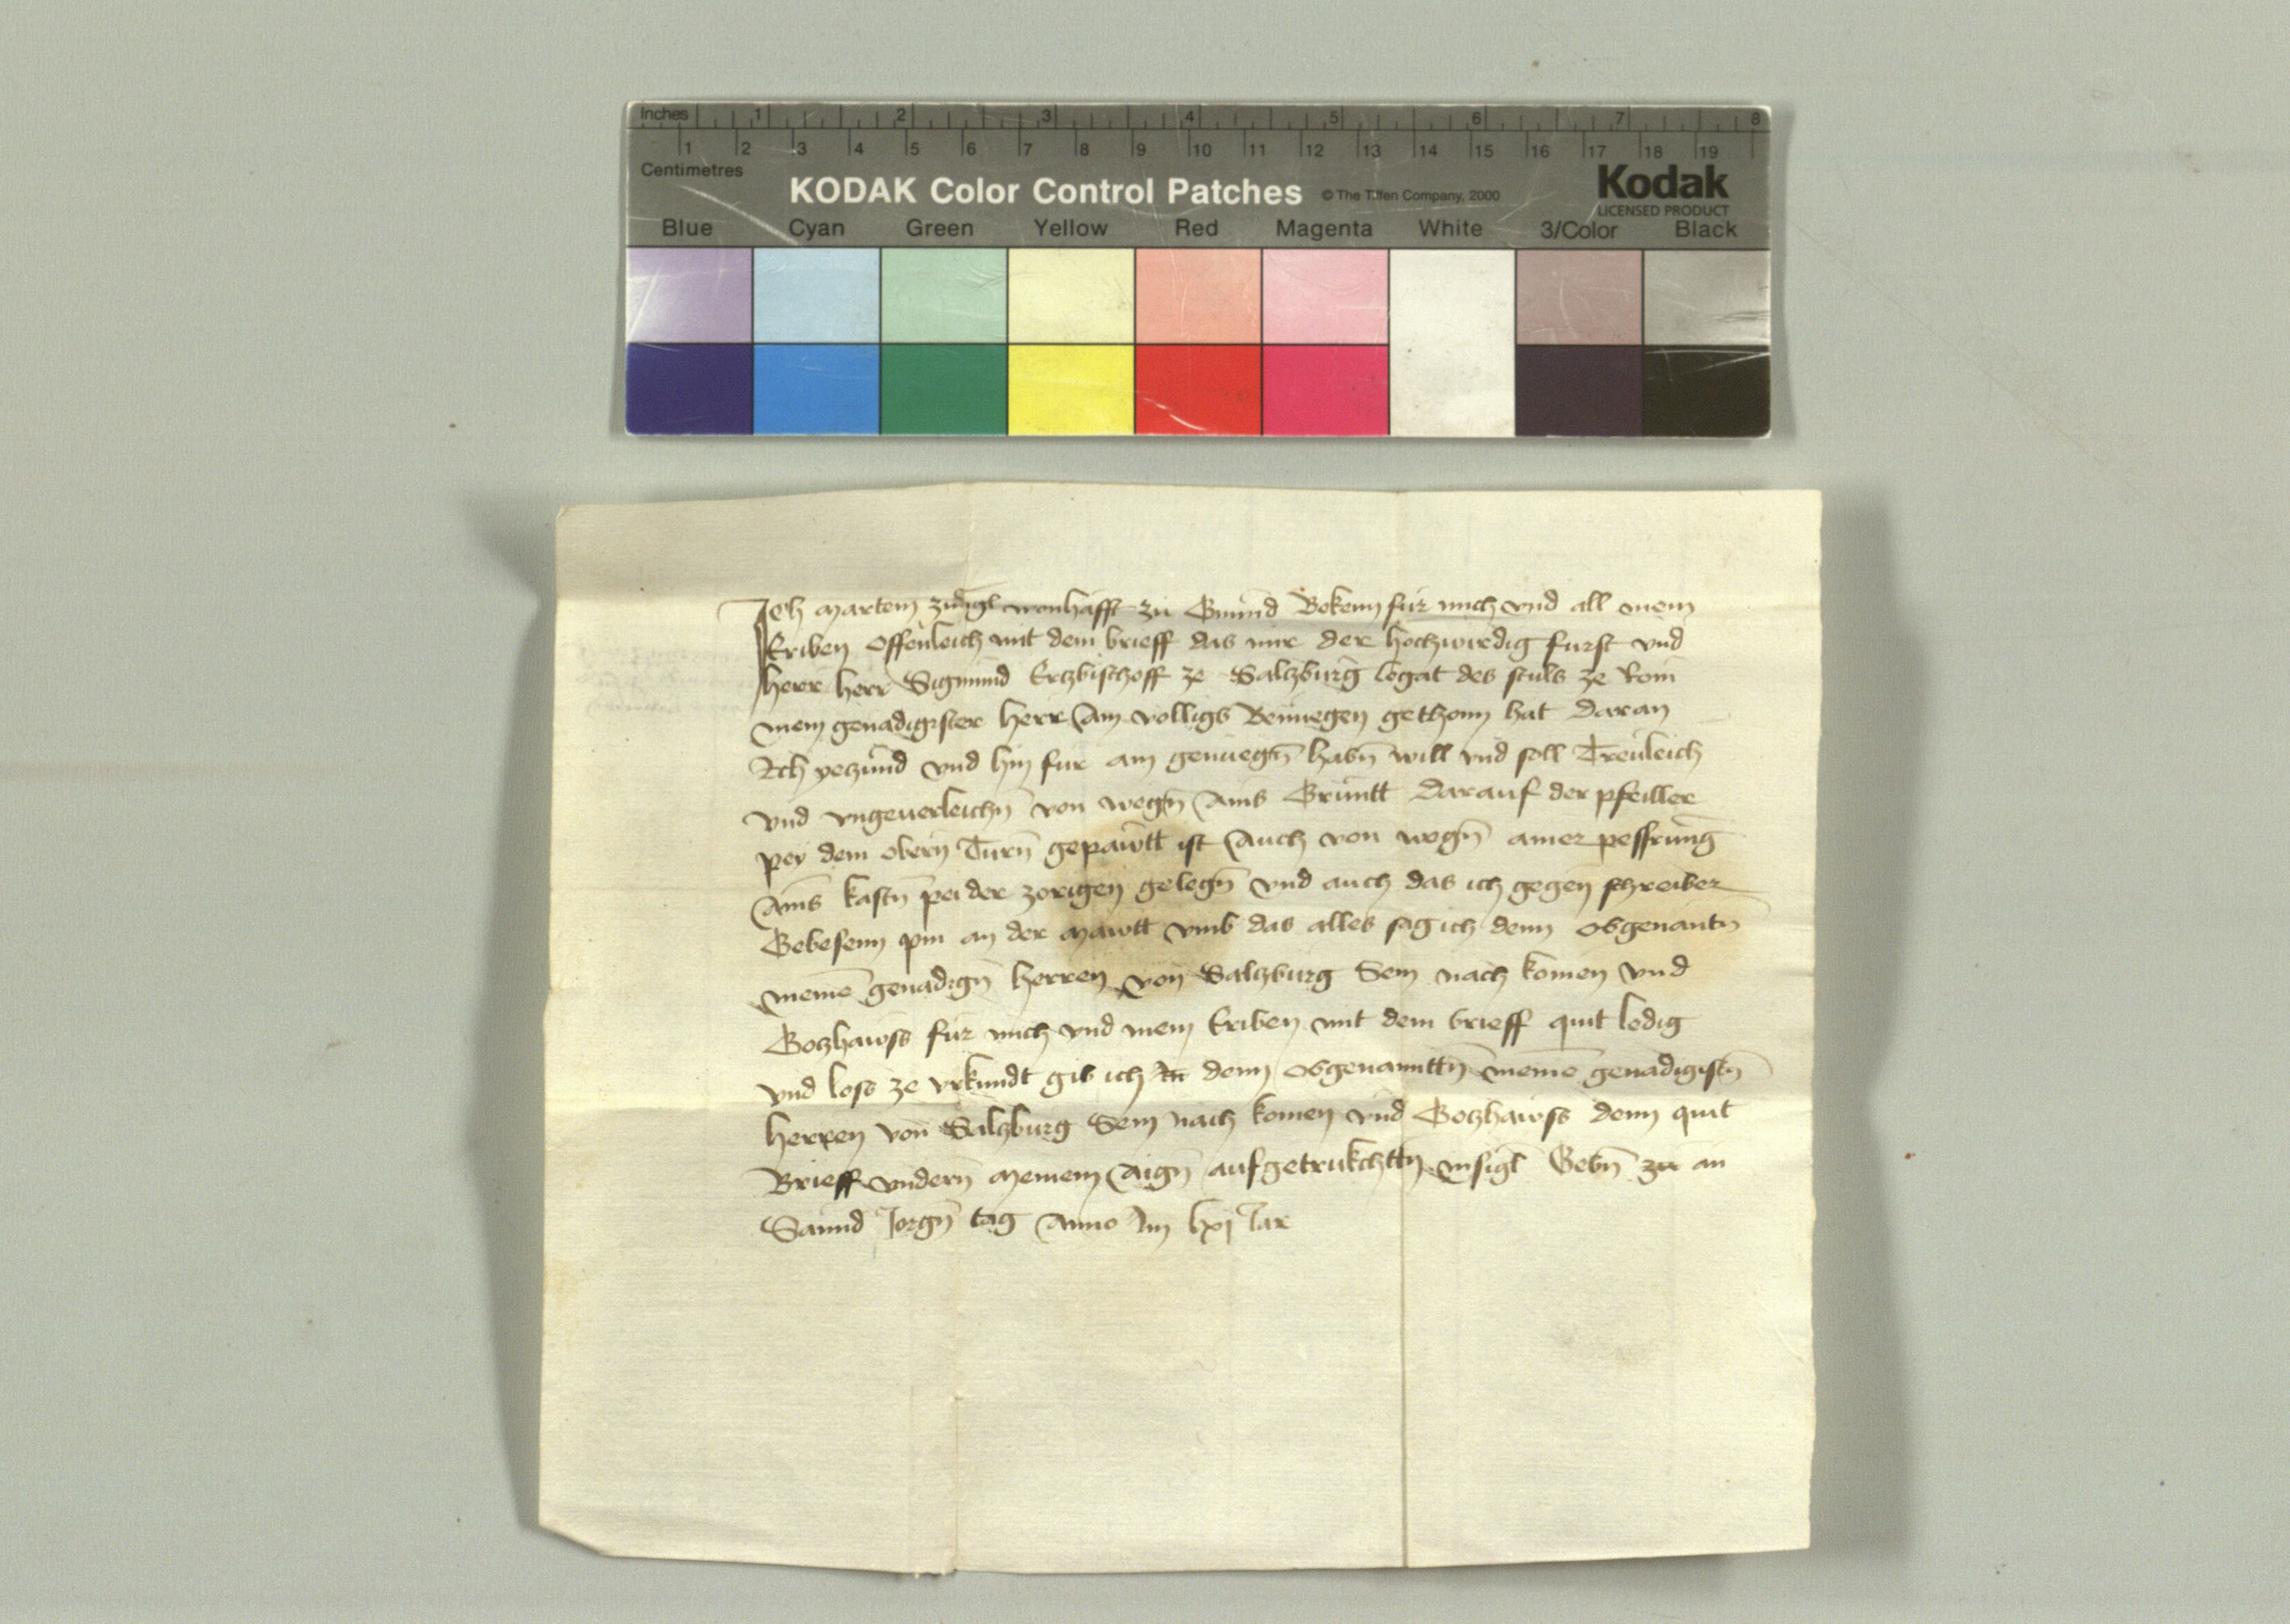 Inches 1 2 3 4 5 6 7 8
1 2 3 4 5 6 7 8 9 10 11 12 13 14 15 16 17 18 19
Centimetres
KODAK Color Control Patches © The Tiffen Company, 2000 Kodak
LICENSED PRODUCT
Blue Cyan Green Yellow Red Magenta White 3/Color Black
Ich martein wonhafft zu Gmund Bekenn fur mich vnd all mein
Eriben offenleich mit dem brieff das mir der hochwirdig furst vnd
herr herr Sigmund Ertzbischoff ze Salzburg legat des stuls ze Rom
mein genadigister herr Ain volligs Benuegen gethonn hat daran
Ich yeczund vnd hin fur ain genuegn̄ habn̄ will vnd soll Treuleich
vnd vngeuerleichn̄ von wegn̄ Ains Gruntt darauf der pfeiller
pey dem obern̄ Turn̄ gepawtt ist Auch von wegn̄ ainer pessrung
Ains kastn̄ pei der gelegn̄ vnd auch das ich gegen schreiber
Gebesenn pin an der mawtt vmb das alles sag ich denn obgenantn̄
meinē genadign̄ herren von Salzburg Sein nach komen vnd
Gozhawss fur mich vnd mein Eriben mit dem brieff quit ledig
vnd loss ze vrkundt gib ich denn obgenanttn̄ meinē genadigistn̄
herren von Salzburg Sein nach komen vnd Gozhawss denn quit
Brieff vndern̄ meinem Aign̄ aufgetrukchttn̄ insigl Gebn̄ an
Sannd Jorgn̄ tag Anno Im lxj Jar